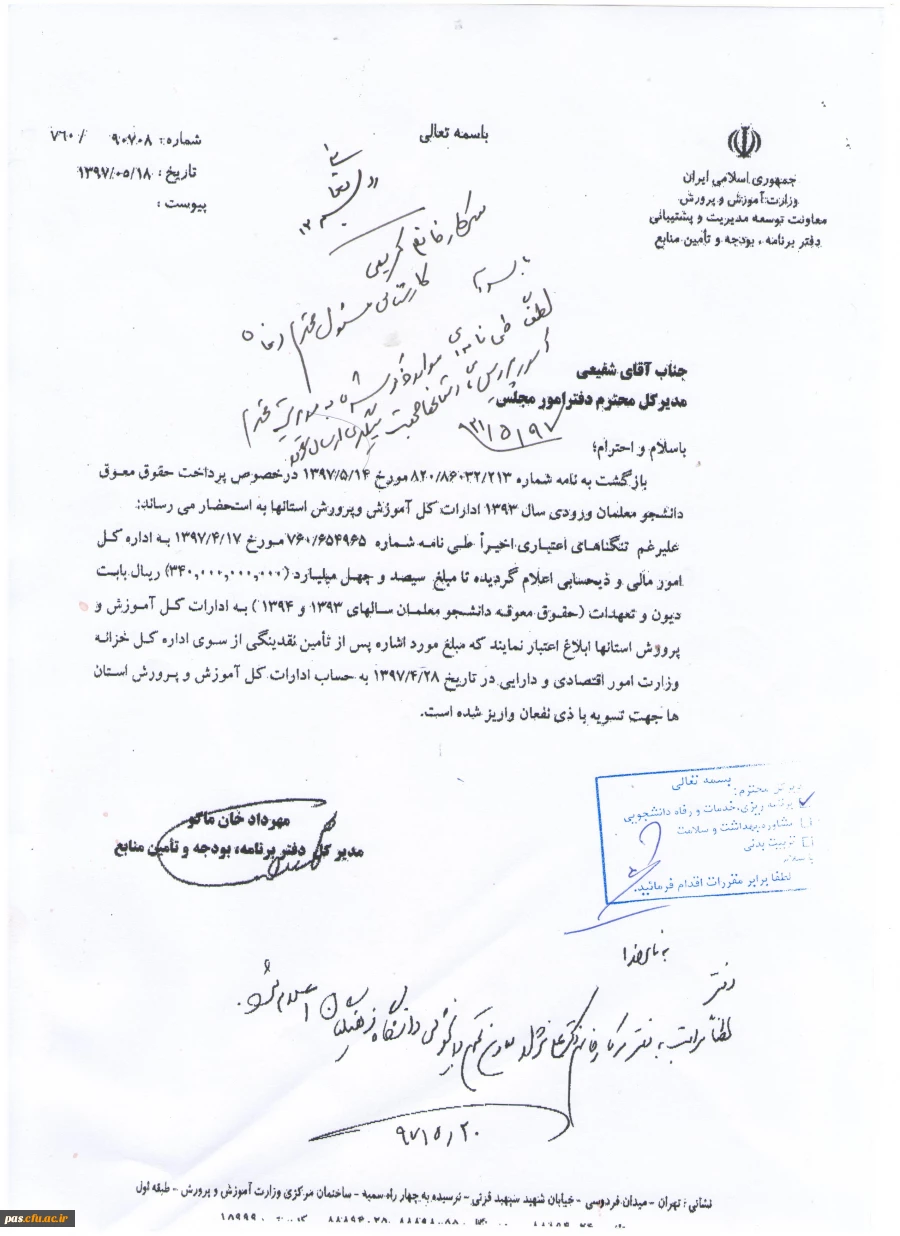 باسمه تعالی
جمهوری اسلامی ایران
وزارت آموزش و پرورش
معاونت توسعه مدیریت و پشتیبانی
دفتر برنامه، بودجه و تأمین منابع
شماره: ۹۰۷۰۸ /۷۶۰
تاریخ: ۱۳۹۷/۰۵/۱۸
پیوست:
سرکار خانم کریمی
کارشناس مسئول محترم
جناب آقای شفیعی
مدیرکل محترم دفترامور مجلس
۹۷/۵/۲۱
باسلام و احترام؛
بازگشت به نامه شماره ۸۲۰/۸۶۰۳۲/۲۱۳ مورخ ۱۳۹۷/۵/۱۴ درخصوص پرداخت حقوق معوق
دانشجو معلمان ورودی سال ۱۳۹۳ ادارات کل آموزش وپرورش استانها به استحضار می رساند:
علیرغم تنگناهای اعتباری اخیراً طی نامه شماره ۷۶۰/۶۵۴۹۶۵ مورخ ۱۳۹۷/۴/۱۷ به اداره کل
امور مالی و ذیحسابی اعلام گردیده تا مبلغ سیصد و چهل میلیارد (۳۴۰,۰۰۰,۰۰۰,۰۰۰) ریال بابت
دیون و تعهدات (حقوق معوقه دانشجو معلمان سالهای ۱۳۹۳ و ۱۳۹۴) به ادارات کل آموزش و
پرورش استانها ابلاغ اعتبار نمایند که مبلغ مورد اشاره پس از تأمین نقدینگی از سوی اداره کل خزانه
وزارت امور اقتصادی و دارایی در تاریخ ۱۳۹۷/۴/۲۸ به حساب ادارات کل آموزش و پرورش استان
ها جهت تسویه با ذی نفعان واریز شده است.
بسمه تعالی
محترم:
برنامه ریزی، خدمات و رفاه دانشجویی
مشاوره، بهداشت و سلامت
تربیت بدنی
باسلام
لطفا برابر مقررات اقدام فرمائید.
مهرداد خان ماکو
مدیر کل دفتر برنامه، بودجه و تأمین منابع
به نام خدا
دفتر
لطفاً مراتب به دفتر سرکار خانم دکتر دانشگاه فرهنگیان اعلام شود.
۹۷/۵/۲۰
نشانی: تهران - میدان فردوسی - خیابان شهید سپهبد قرنی - نرسیده به چهار راه سمیه - ساختمان مرکزی وزارت آموزش و پرورش - طبقه اول
pas.cfu.ac.ir